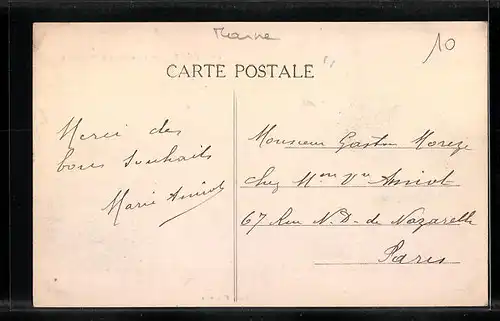 Marne
10
CARTE POSTALE
Merci des
bons Souhaits
Marie Amiot
Monsieur Gaston Moreze
chez Mme Vve Amiot
67 Rue N.D. de Nazareth
Paris